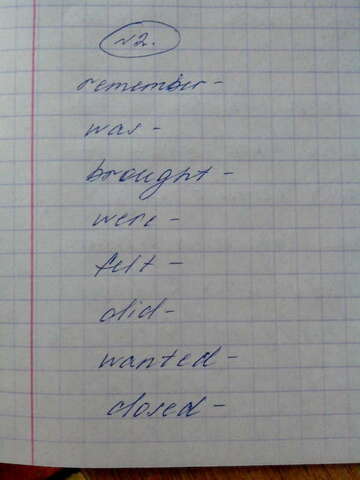 N2.
remember -
was -
brought -
were -
felt -
did -
wanted -
closed -